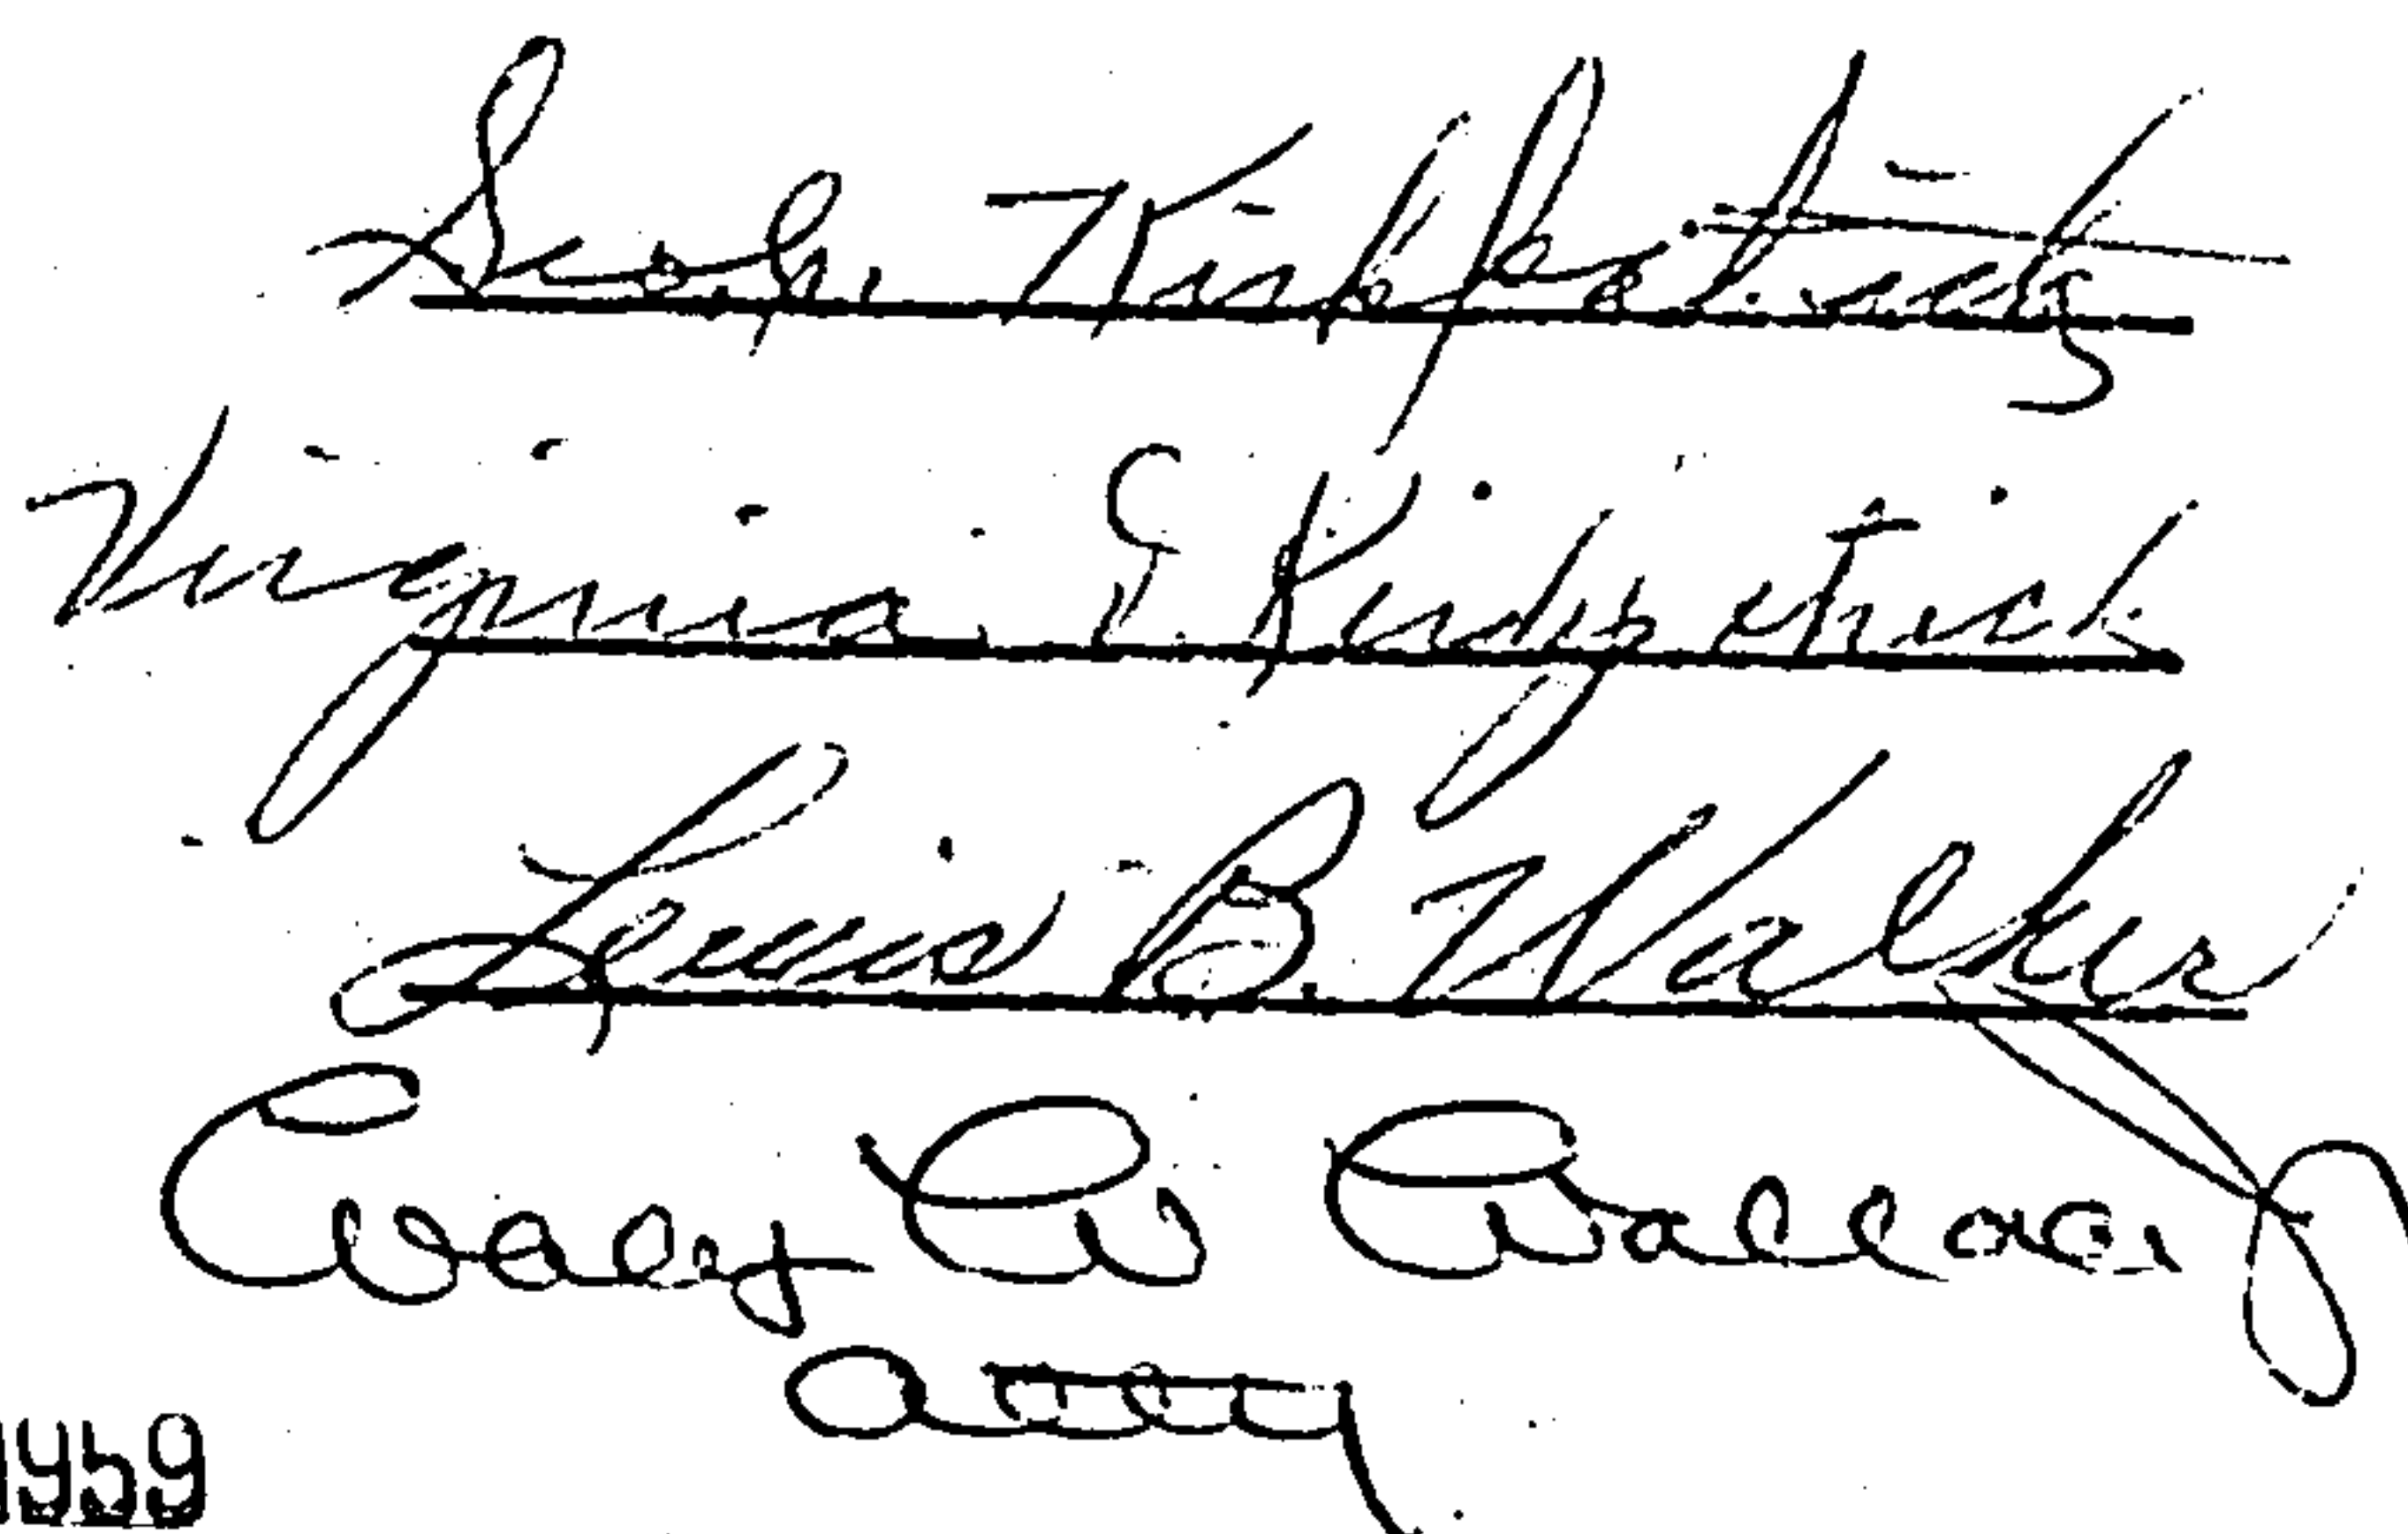 Kirkpatrick
Virginia E Kirkpatrick
Lewis B. Walker
W Wallace
Atty
1959